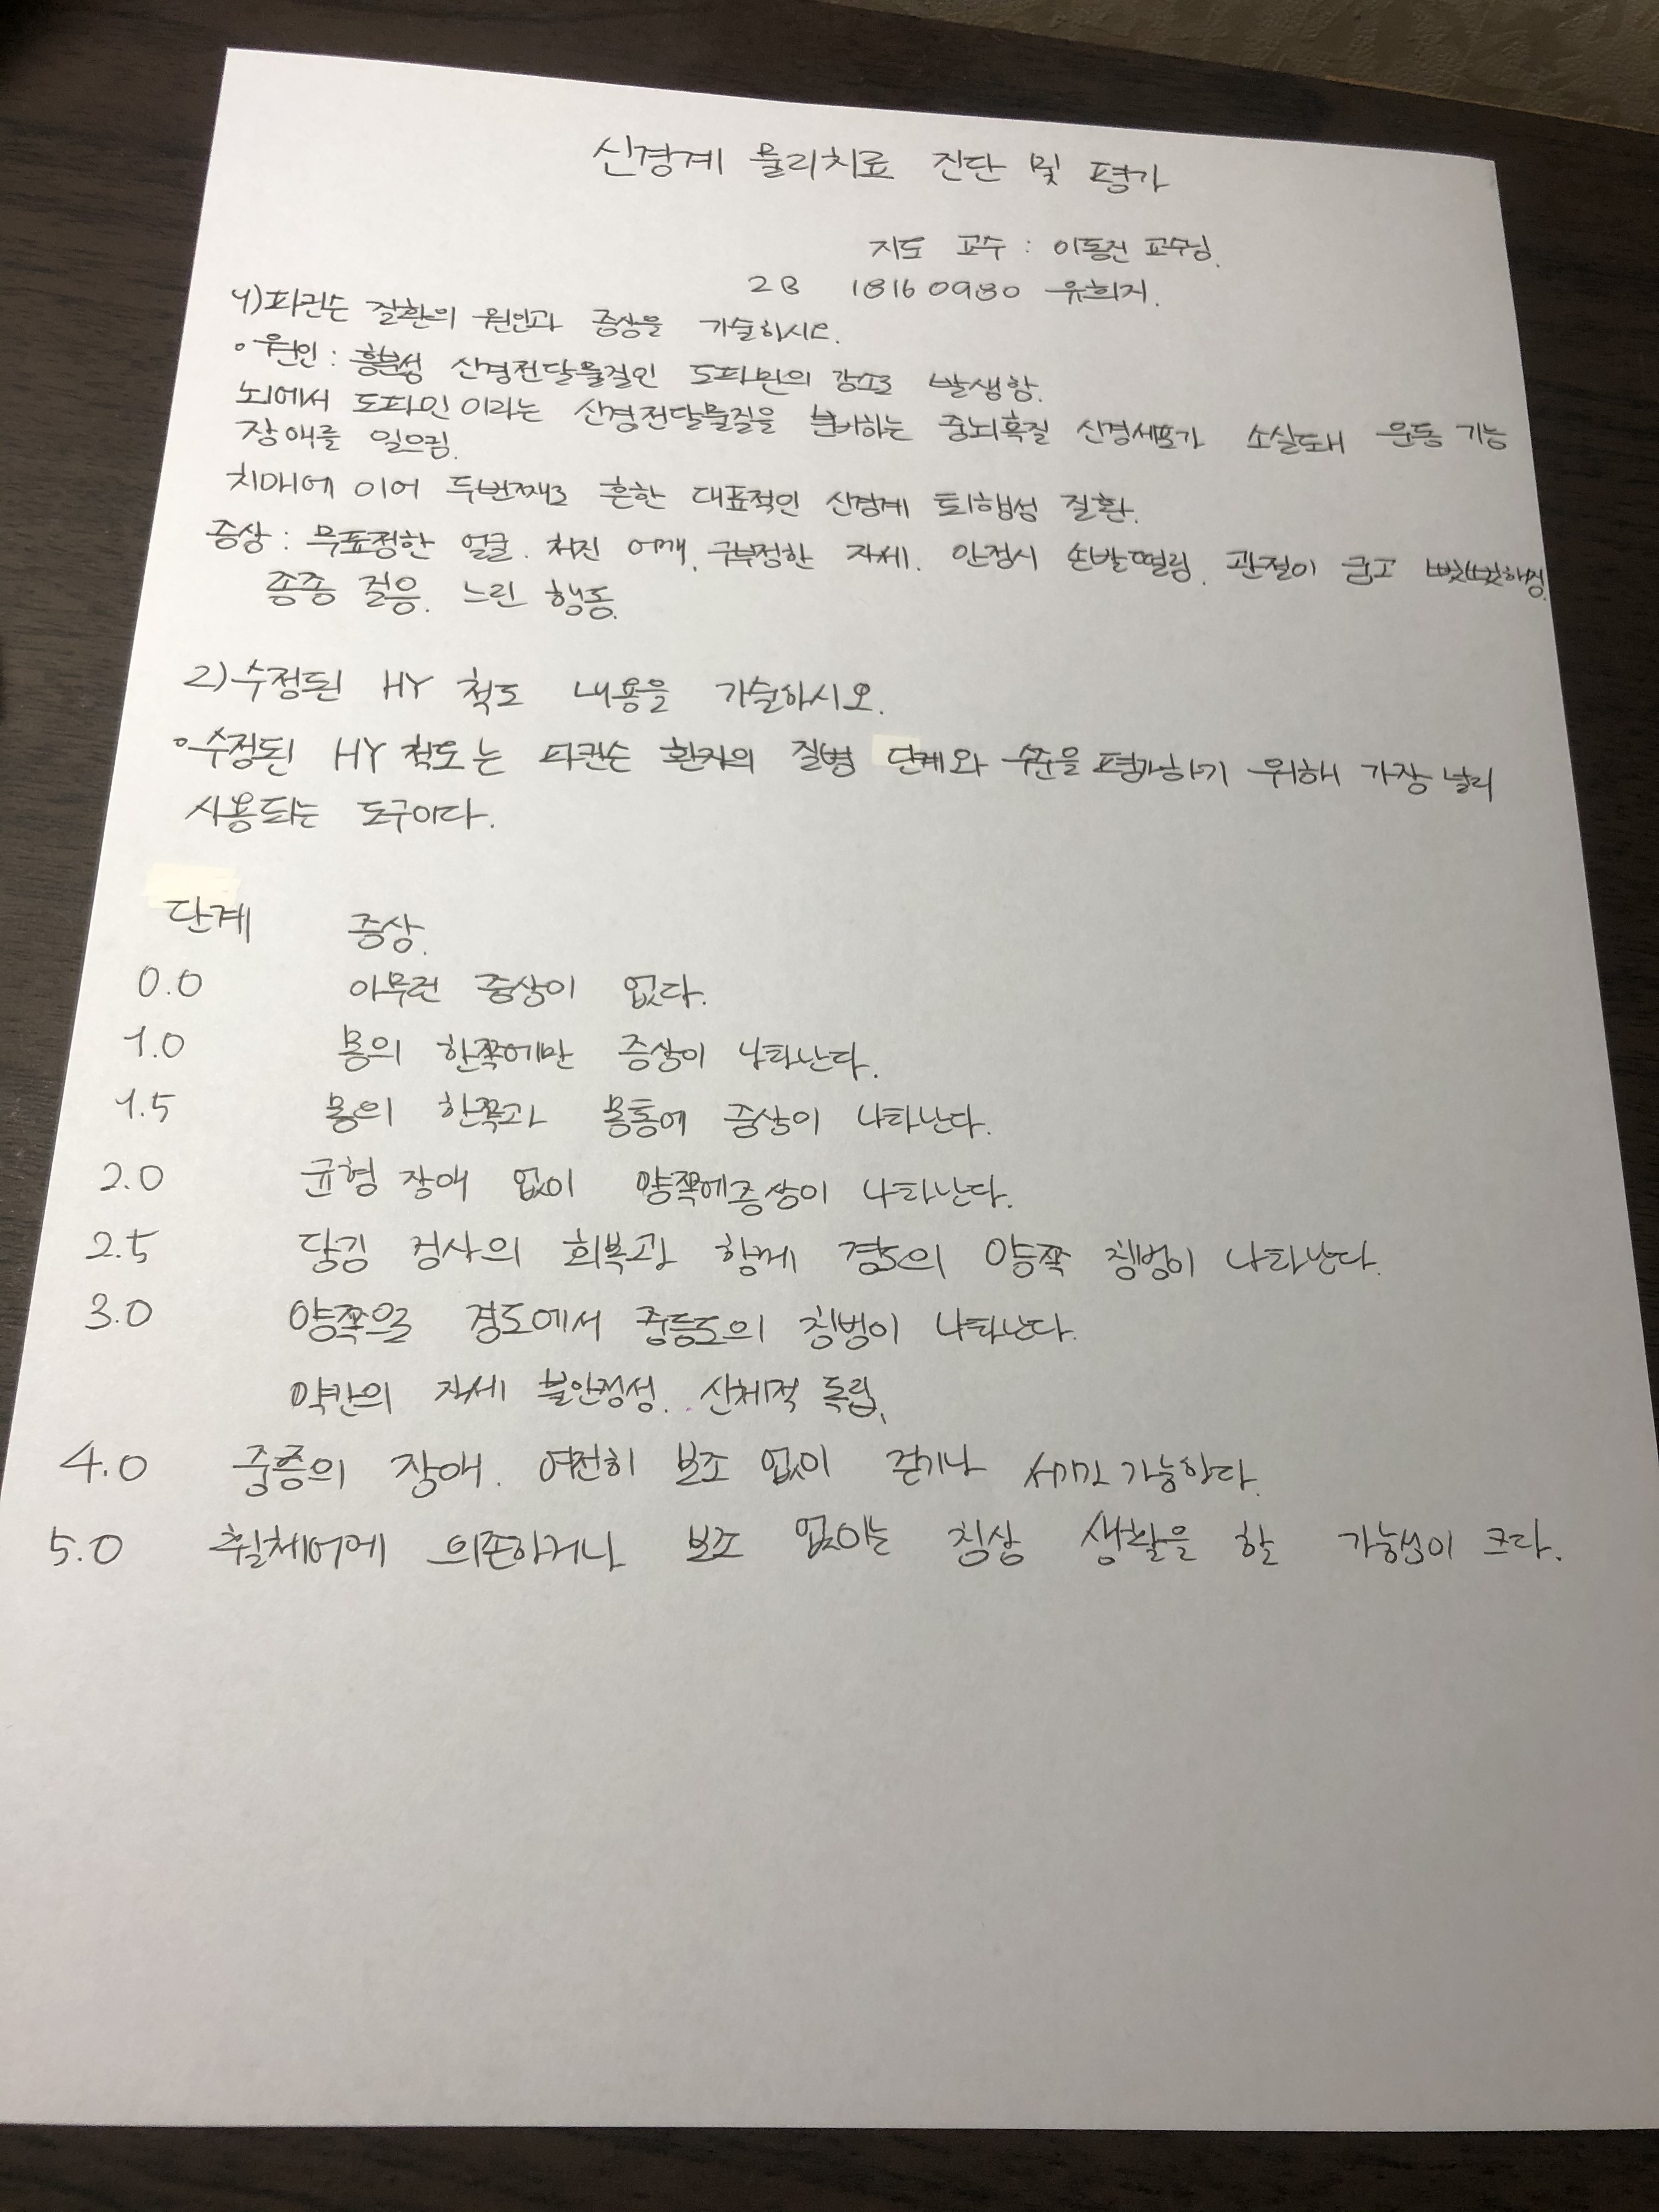 신경계 물리치료 진단 및 평가
지도 교수 : 이동건 교수님.
2B 18160980 유희지.
1)파킨슨 질환의 원인과 증상을 기술하시오.
원인 : 흥분성 신경전달물질인 도파민의 감소로 발생함.
뇌에서 도파민이라는 신경전달물질을 분비하는 중뇌흑질 신경세포가 소실돼서 운동 기능
장애를 일으킴.
치매에 이어 두번째로 흔한 대표적인 신경계 퇴행성 질환.
증상 : 무표정한 얼굴. 처진 어깨. 구부정한 자세. 안정시 손발떨림. 관절이 굽고 뻣뻣해짐.
종종 걸음. 느린 행동.
2)수정된 HY 척도 내용을 기술하시오.
수정된 HY 척도는 파킨슨 환자의 질병 단계와 수준을 평가하기 위해 가장 널리
사용되는 도구이다.
단계 증상.
0.0 아무런 증상이 없다.
1.0 몸의 한쪽에만 증상이 나타난다.
1.5 몸의 한쪽과 몸통에 증상이 나타난다.
2.0 균형 장애 없이 양쪽에증상이 나타난다.
2.5 당김 검사의 회복과 함께 경도의 양쪽 침범이 나타난다.
3.0 양쪽으로 경도에서 중등도의 침범이 나타난다.
약간의 자세 불안정성. 신체적 독립.
4.0 중증의 장애. 여전히 보조 없이 걷거나 서기가 가능하다.
5.0 휠체어에 의존하거나 보조 없이는 침상 생활을 할 가능성이 크다.